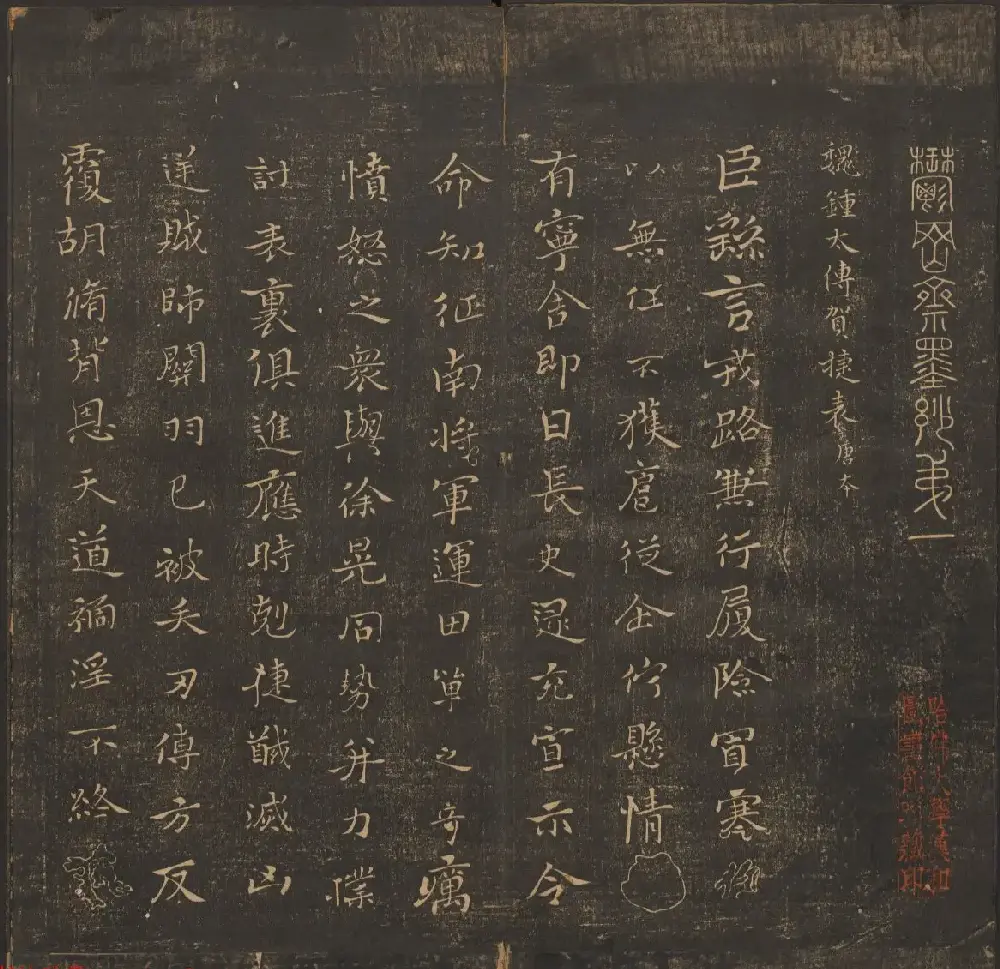 鬱岡齋墨妙弟一
魏鍾太傅賀捷表唐本
臣繇言戎路兼行履險冒寒
以無任不獲扈從企佇懸情
有寧舍即日長史逯充宣示令
命知征南將軍運田單之奇厲
憤怒之衆與徐晃同勢并力撲
討表裏俱進應時剋捷馘滅凶
逆賊帥關羽已被矢刃傅方反
覆胡脩背恩天道禍淫不終
哈佛大學漢和
圖書館珍藏印